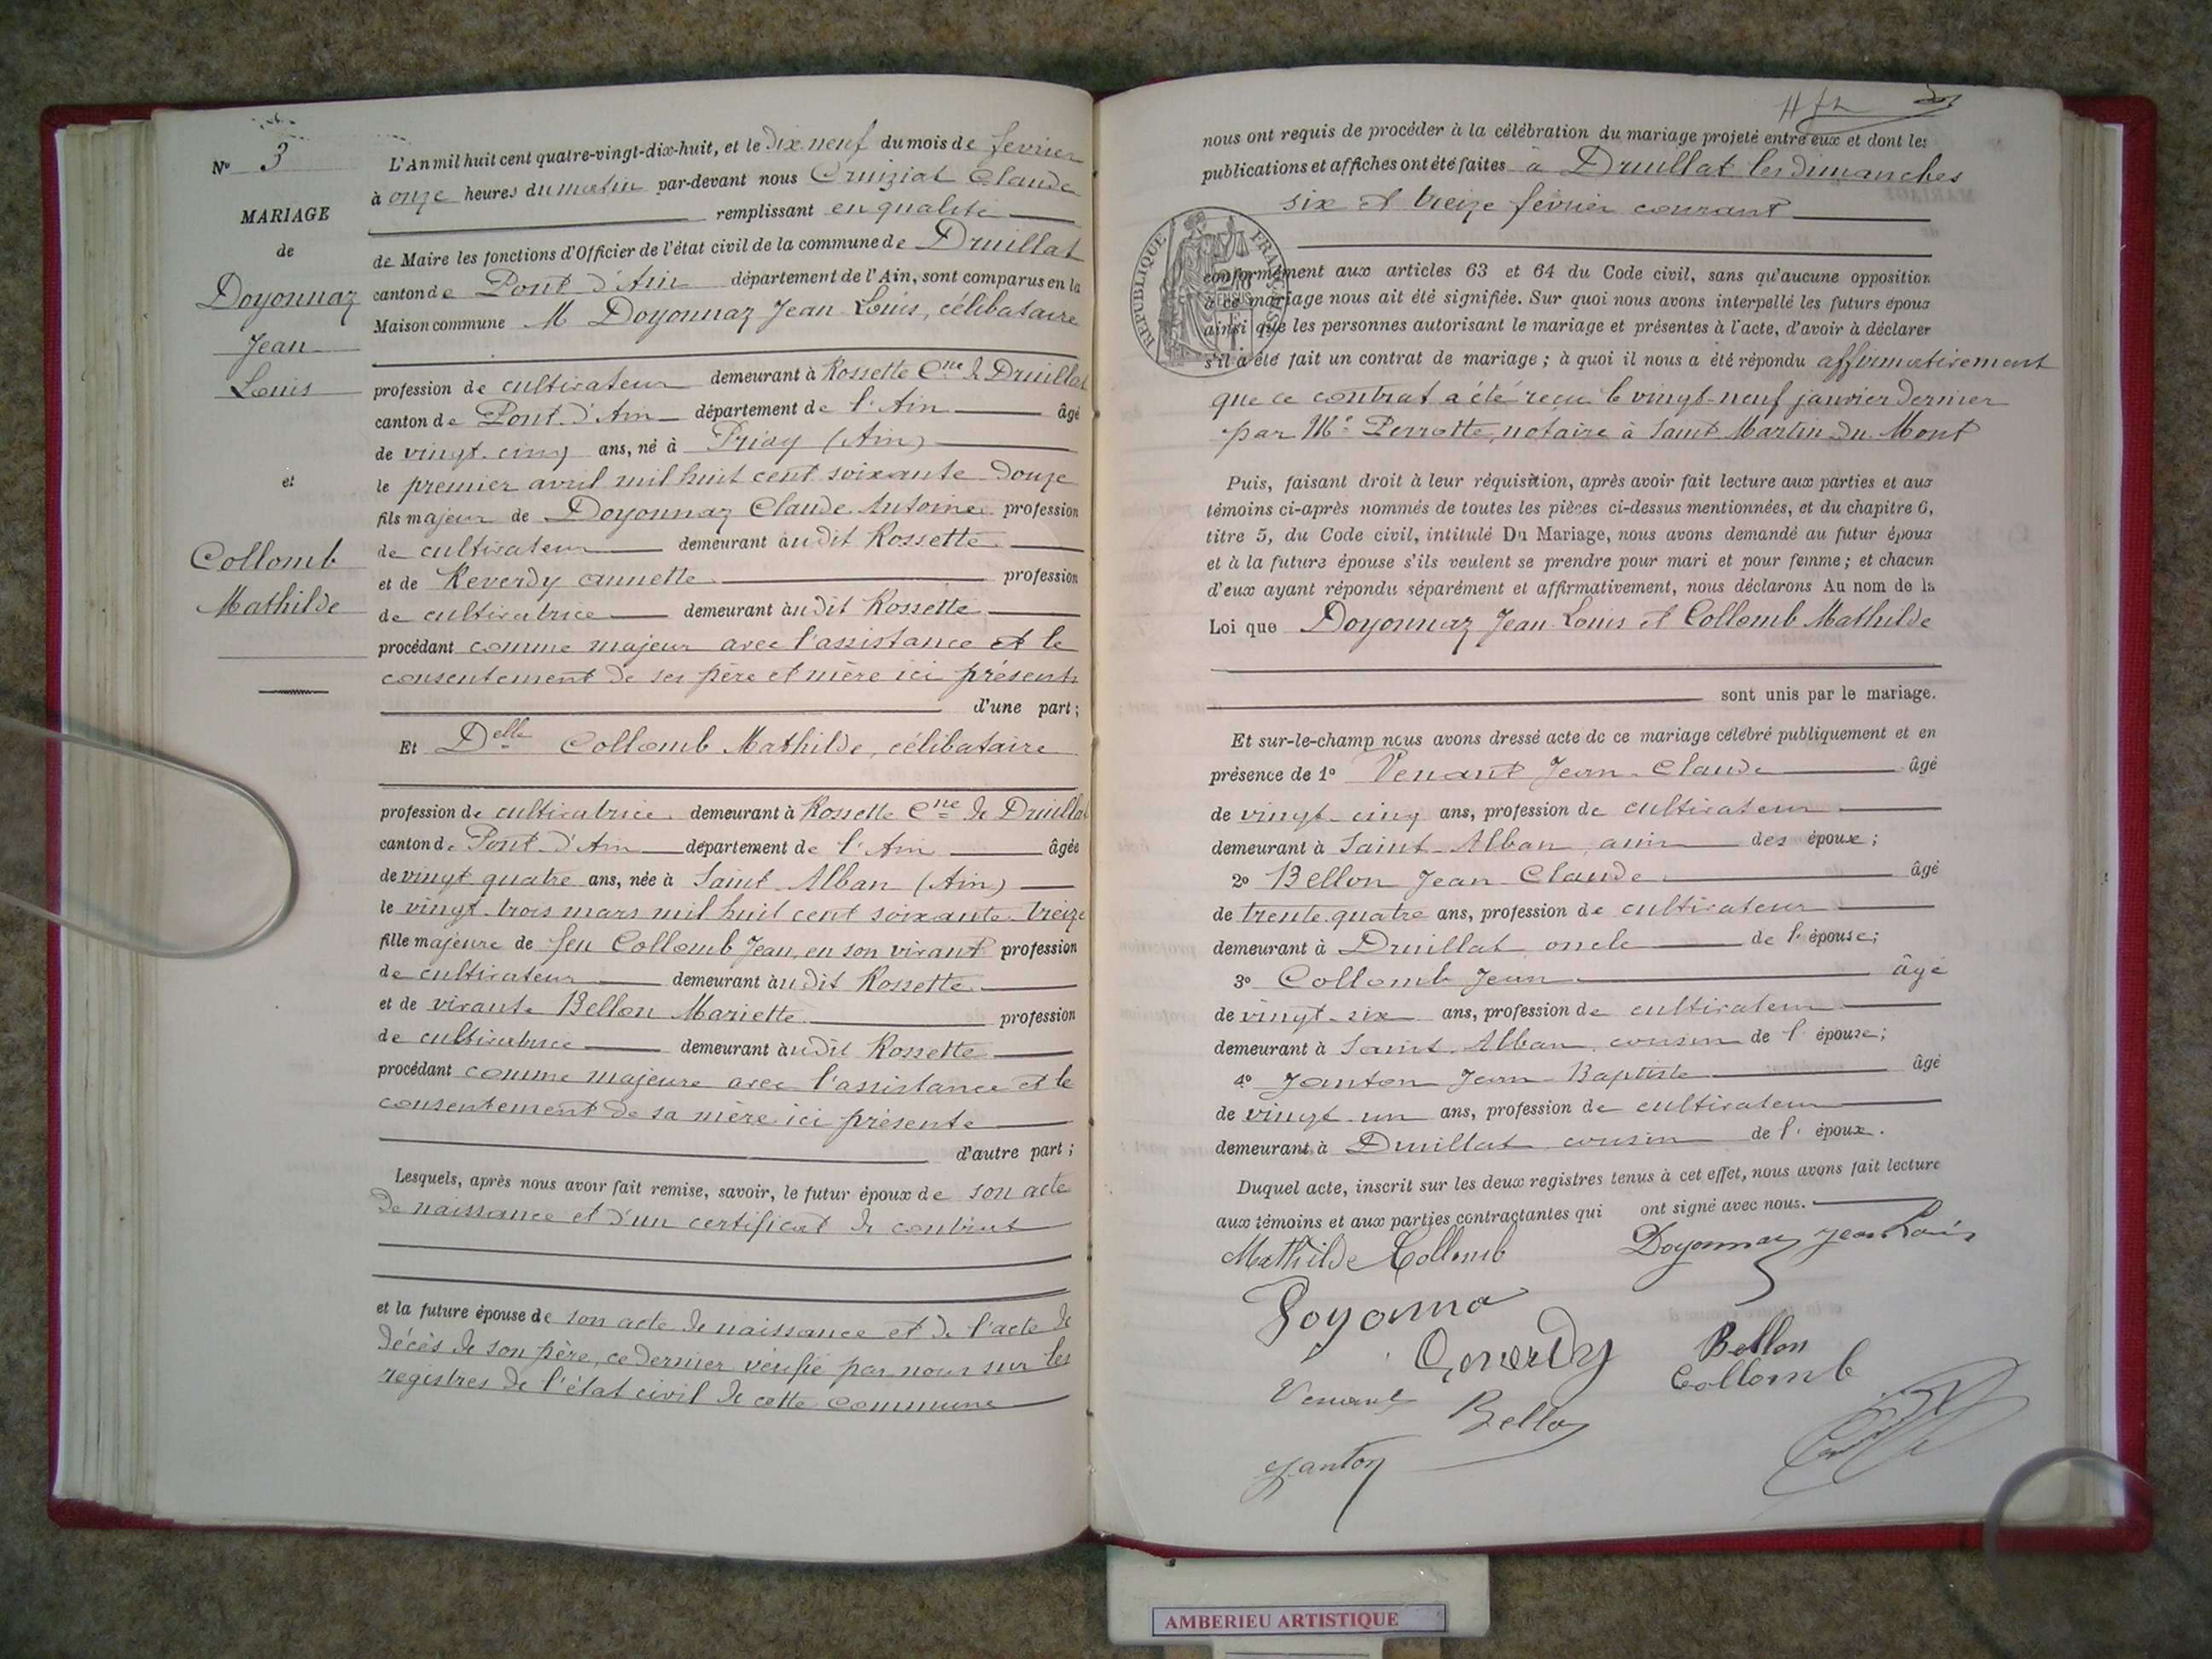 N° 3
MARIAGE
de
Doyonnaz
Jean
Louis
et
Collomb
Mathilde
L'An mil huit cent quatre-vingt-dix-huit, et le dix neuf du mois de fevrier
à onze heures du matin par-devant nous Cruiziat Claude
remplissant en qualité
de Maire les fonctions d'Officier de l'état civil de la commune de Druillat
canton de Pont d'Ain département de l'Ain, sont comparus en la
Maison commune M Doyonnaz Jean Louis, célibataire
profession de cultivateur demeurant à Rossette Cne de Druillat
canton de Pont d'Ain département de l'Ain âgé
de vingt-cinq ans, né à Priay (Ain)
le premier avril mil huit cent soixante douze
fils majeur de Doyonnaz Claude Antoine profession
de cultivateur demeurant audit Rossette
et de Reverdy annette profession
de cultivatrice demeurant audit Rossette
procédant comme majeur avec l'assistance et le
consentement de ses père et mère ici présents
d'une part;
Et Delle Collomb Mathilde, célibataire
profession de cultivatrice demeurant à Rossette Cne de Druillat
canton de Pont d'Ain département de l'Ain âgée
de vingt quatre ans, née à Saint Alban (Ain)
le vingt trois mars mil huit cent soixante treize
fille majeure de feu Collomb Jean, en son vivant profession
de cultivateur demeurant audit Rossette
et de vivante Bellon Mariette profession
de cultivatrice demeurant audit Rossette
procédant comme majeure avec l'assistance et le
consentement de sa mère ici présente
d'autre part;
Lesquels, après nous avoir fait remise, savoir, le futur époux de son acte
de naissance et d'un certificat de contrat
et la future épouse de son acte de naissance et de l'acte de
décès de son père, ce dernier vérifié par nous sur les
registres de l'état civil de cette commune
nous ont requis de procéder à la célébration du mariage projeté entre eux et dont les
publications et affiches ont été faites à Druillat les dimanches
six et treize février courant
REPUBLIQUE FRANÇAISE
conformément aux articles 63 et 64 du Code civil, sans qu'aucune opposition
à ce mariage nous ait été signifiée. Sur quoi nous avons interpellé les futurs époux
ainsi que les personnes autorisant le mariage et présentes à l'acte, d'avoir à déclarer
s'il a été fait un contrat de mariage; à quoi il nous a été répondu affirmativement
que ce contrat a été reçu le vingt-neuf janvier dernier
par Me Perrotte, notaire à Saint Martin du Mont
Puis, faisant droit à leur réquisition, après avoir fait lecture aux parties et aux
témoins ci-après nommés de toutes les pièces ci-dessus mentionnées, et du chapitre 6,
titre 5, du Code civil, intitulé Du Mariage, nous avons demandé au futur époux
et à la future épouse s'ils veulent se prendre pour mari et pour femme; et chacun
d'eux ayant répondu séparément et affirmativement, nous déclarons Au nom de la
Loi que Doyonnaz Jean Louis et Collomb Mathilde
sont unis par le mariage.
Et sur-le-champ nous avons dressé acte de ce mariage célébré publiquement et en
présence de 1° Venant Jean-Claude âgé
de vingt-cinq ans, profession de cultivateur
demeurant à Saint-Alban, ami des époux;
2° Bellon Jean Claude âgé
de trente quatre ans, profession de cultivateur
demeurant à Druillat, oncle de l'épouse;
3° Collomb Jean âgé
de vingt-six ans, profession de cultivateur
demeurant à Saint Alban, cousin de l'épouse;
4° Janton Jean-Baptiste âgé
de vingt-un ans, profession de cultivateur
demeurant à Druillat cousin de l'époux.
Duquel acte, inscrit sur les deux registres tenus à cet effet, nous avons fait lecture
aux témoins et aux parties contractantes qui ont signé avec nous.
Mathilde Collomb Doyonnaz Jean Louis
Doyonna
Reverdy Bellon
Collomb
Venant Bellon
Janton
AMBERIEU ARTISTIQUE